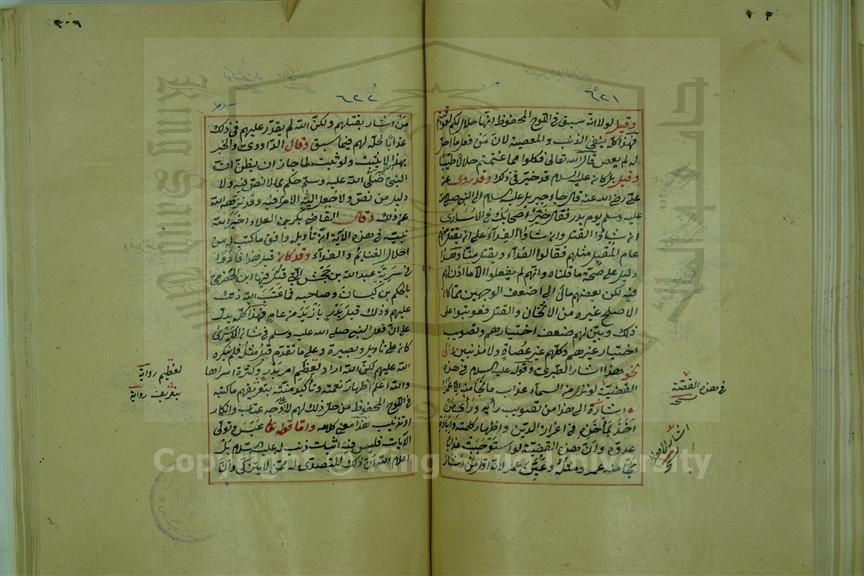 ٦٢١
وقيل لولا انه سبق في اللوح المحفوظ انها حلال لكم لعوقبتم
فهذا كله ينفي الذنب والمعصية لان من فعل ما احل
له لم يعص قال الله تعالى فكلوا مما غنمتم حلالا طيبا
وقيل بل كان عليه السلام قد خير في ذلك وقد روي عن
علي رضي الله عنه قال جاء جبريل عليه السلام الى النبي صلى الله
عليه وسلم يوم بدر فقال خير اصحابك في الاسارى
ان شاؤا القتل وان شاؤا الفداء على ان يقتل منهم
عام المقبل مثلهم فقالوا الفداء ويقتل منا وهذا
دليل على صحة ما قلناه وانهم لم يفعلوا الا ما اذن لهم
فيه لكن بعضهم مال الى اضعف الوجهين مما كان
الاصلح غيره من الاثخان والقتل فعوتبوا على
ذلك وبين لهم ضعف اختيارهم وتصويب
اختيار غيرهم وكلهم غير عصاة ولا مذنبين والى
نحو هذا اشار الطبري وقوله عليه السلام في هذه
القضية لو نزل من السماء عذاب ما نجا منه الا عمر
اشارة الى هذا من تصويب رايه وراي من
اخذ بمأخذه في اعزاز الدين واظهار كلمته وابادة
عدوه وان هذه القضية لو استوجبت عذابا
نجا منه عمر ومثله وعين عمر لانه اول من اشار
في هذه القصة
نسخ
٦٢٢
من اشار بقتلهم ولكن الله لم يقدر عليهم في ذلك
عذابا لحله لهم فيما سبق وقال الداودي والخبر
بهذا لا يثبت ولو ثبت لما جاز ان يظن ان
النبي صلى الله عليه وسلم حكم بما لا نص فيه ولا
دليل من نص ولا جعل الامر فيه وقد نزهه الله
عن ذلك وقال القاضي بكر بن العلاء اخبر الله
نبيه في هذه الآية ان تأويله وافق ما كتب له من
احلال الغنائم والفداء وقد كان قبل هذا فادوا
في سرية عبد الله بن جحش التي قتل فيها ابن الحضرمي
بالحكم بن كيسان وصاحبه فما عتب الله ذلك
عليهم وذلك قبل بدر بازيد من عام فهذا كله يدل
على ان فعل النبي صلى الله عليه وسلم في شأن الاسرى
كان على تأويل وبصيرة وعلى ما تقدم قبل مثله فلم ينكره
الله عليهم لكن الله اراد لعظم امر بدر وكثرة اسراها
والله اعلم اظهار نعمته وتأكيد منته بتعريفهم ما كتبه
في اللوح المحفوظ من حل ذلك لهم لا على وجه عتاب وانكار
او تذنيب هذا معنى كلامه واما قوله عبس وتولى
الآيات فليس فيه اثبات ذنب له عليه السلام بل
اعلام الله ان ذلك المتصدي له ممن لا يتزكى وان
لتعظيم رواية
بتعريف رواية
Copyright © King Saud University
King Saud University